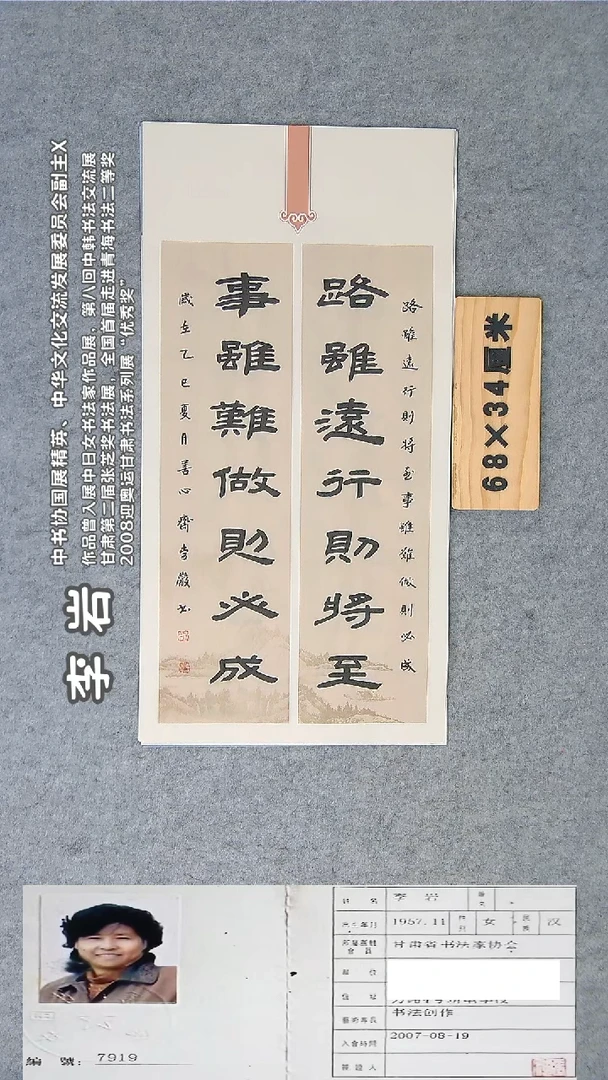 李岩
中书协国展精英、中华文化交流发展委员会副主X
作品曾入展中日女书法家作品展，第八回中韩书法交流展
甘肃第二届张芝奖书法展，全国首届走进青海书法二等奖
2008迎奥运甘肃书法系列展“优秀奖”
路雖遠行則將至事雖難做則必成
路雖遠行則將至
事雖難做則必成
歲在乙巳夏月善心齋李巖書
68×34厘米
姓名 李岩
出生年月 1957.11 性别 女 民族 汉
甘肃省书法家协会
書法创作
入會時間 2007-08-19
簽證人
編號：7919